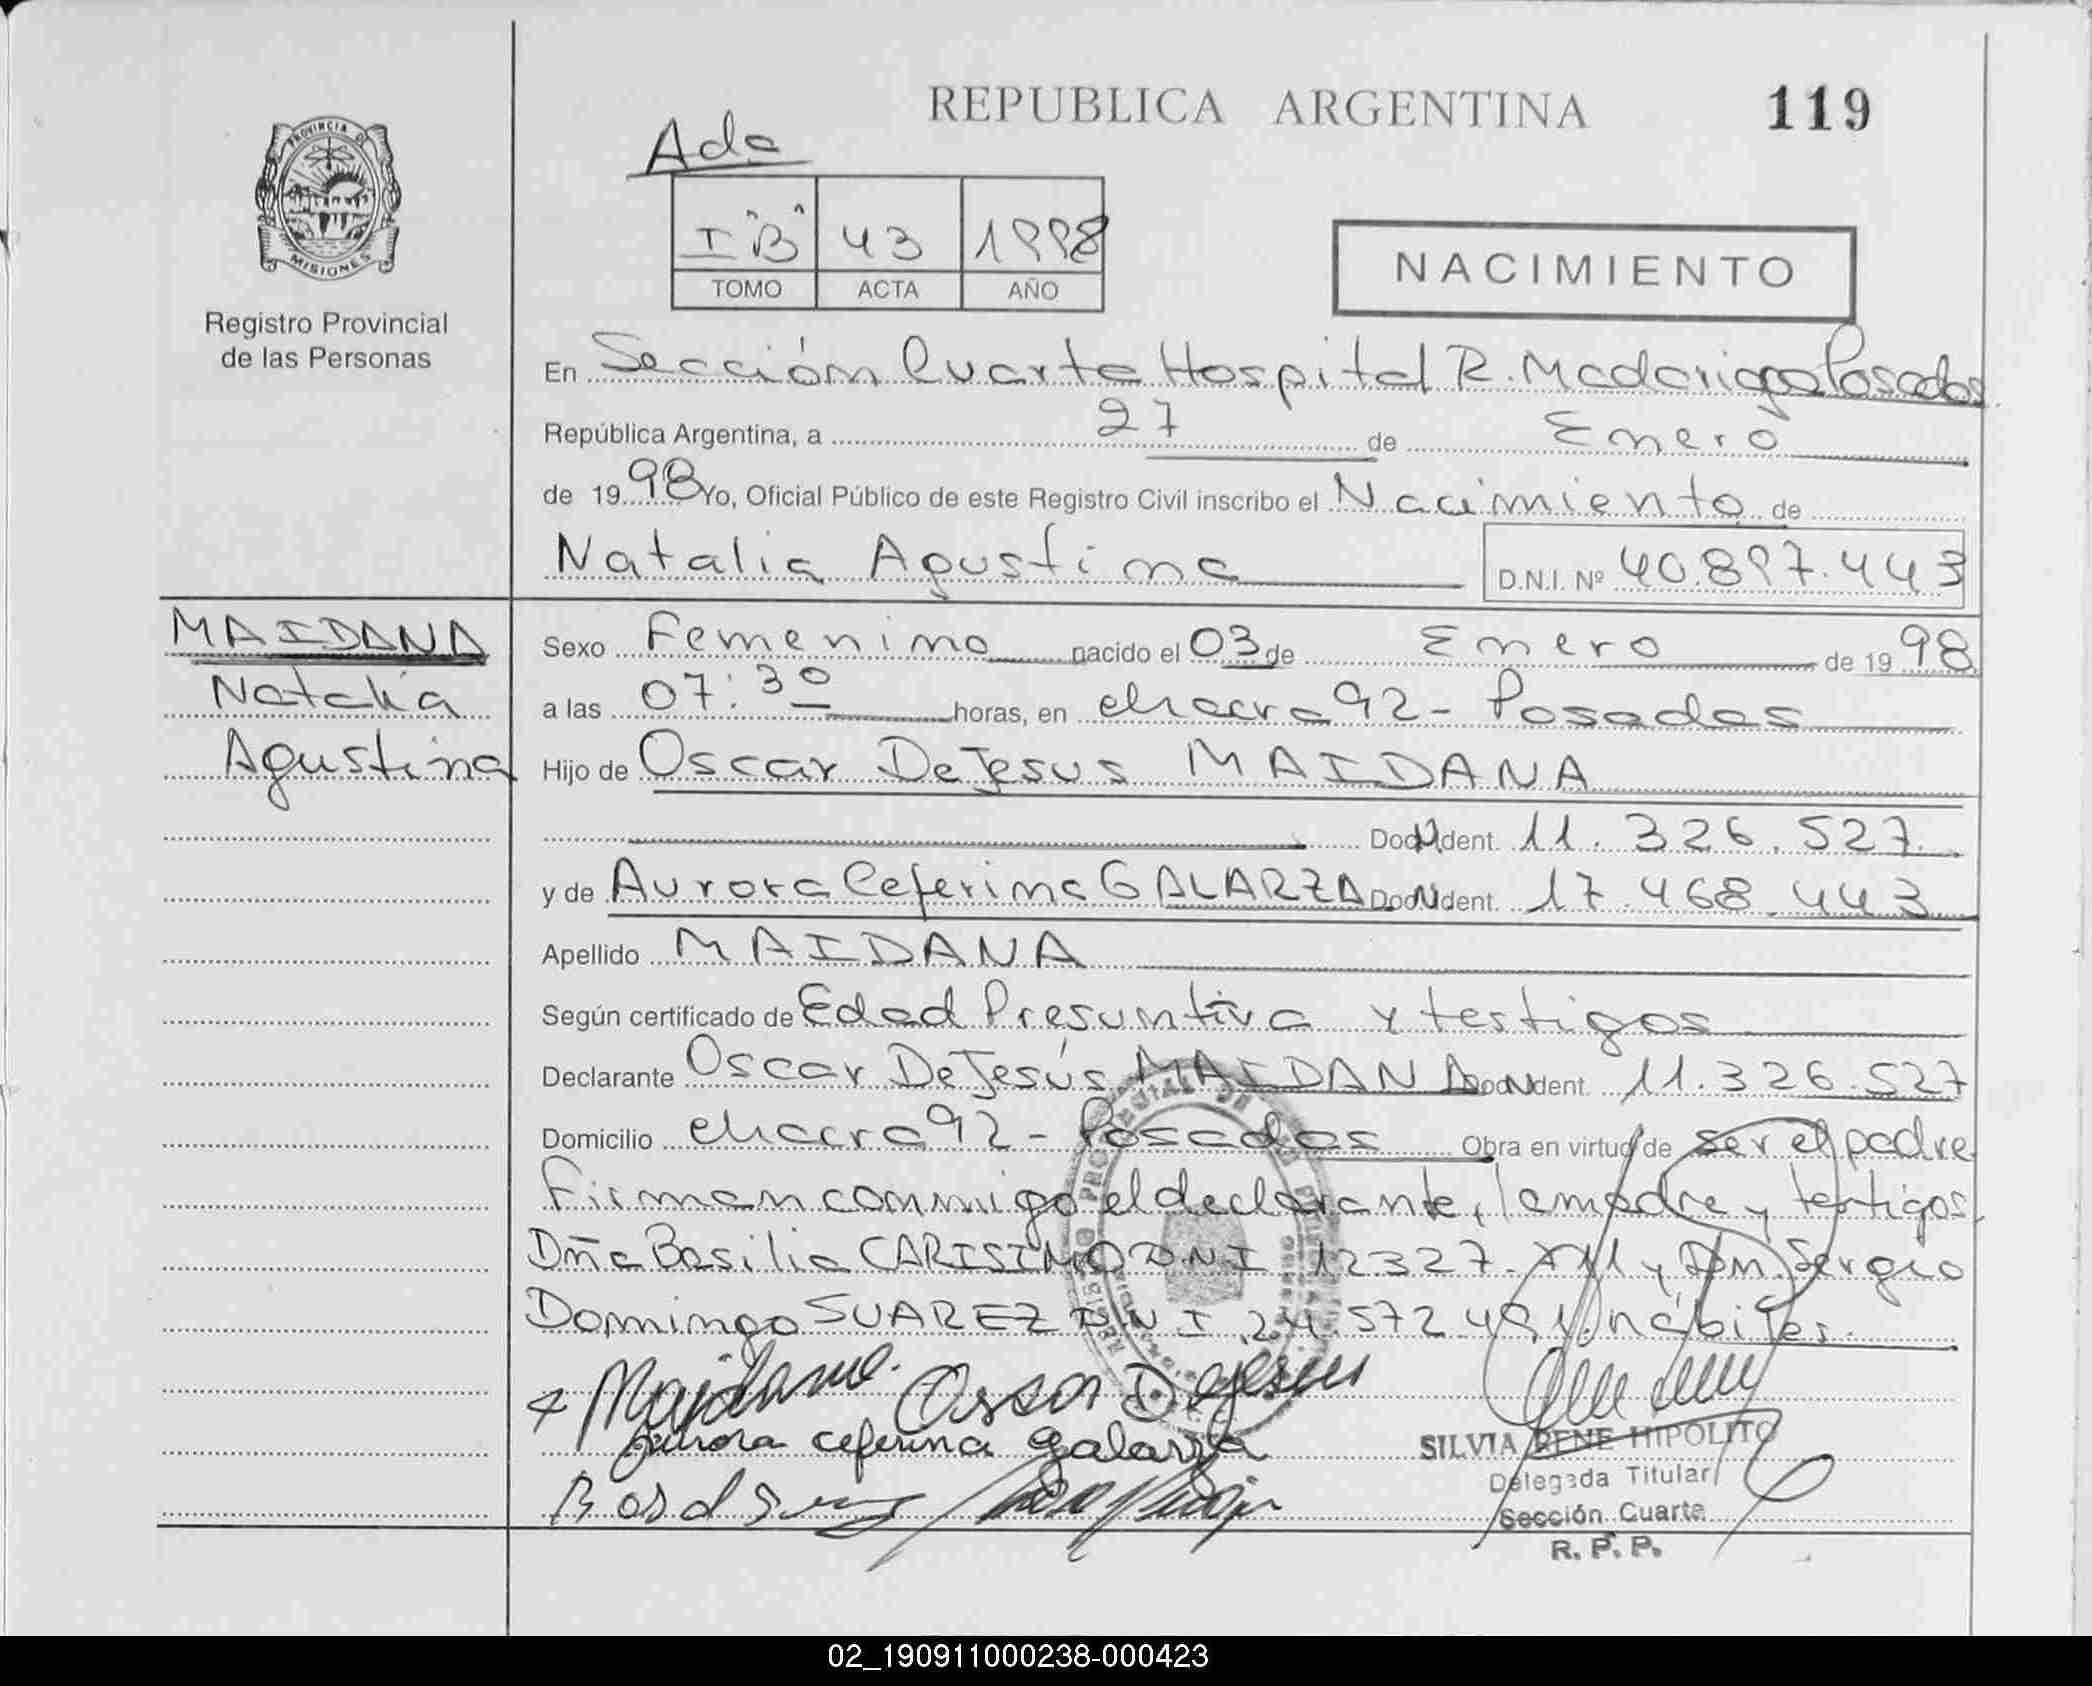 REPUBLICA ARGENTINA
119
Ada
I "B" 43 1998
TOMO ACTA AÑO
NACIMIENTO
PROVINCIA DE
MISIONES
Registro Provincial
de las Personas
En Sección Cuarta Hospital R. Madariaga Posadas
República Argentina, a 27 de Enero
de 1998 Yo, Oficial Público de este Registro Civil inscribo el Nacimiento de
Natalia Agustina D.N.I. Nº 40.897.443
MAIDANA
Natalia
Agustina
Sexo Femenino nacido el 03 de Enero de 1998
a las 07:30 horas, en chacra 92 - Posadas
Hijo de Oscar De Jesus MAIDANA
Doc. Ident. 11.326.527
y de Aurora Ceferina GALARZA Doc. Ident. 17.468.443
Apellido MAIDANA
Según certificado de Edad Presuntiva y testigos
Declarante Oscar De Jesús MAIDANA Doc. Ident. 11.326.527
Domicilio chacra 92 - Posadas Obra en virtud de ser el padre
Firman conmigo el declarante, la madre y testigos
Dña Basilia CARISIMO DNI 12327. y Dn. Sergio
Domingo SUAREZ DNI 24.572.491. hábiles.
Maidana Oscar Dejesus
Aurora ceferina galarza
SILVIA RENE HIPOLITO
Delegada Titular
Sección Cuarta
R. P. P.
02_190911000238-000423